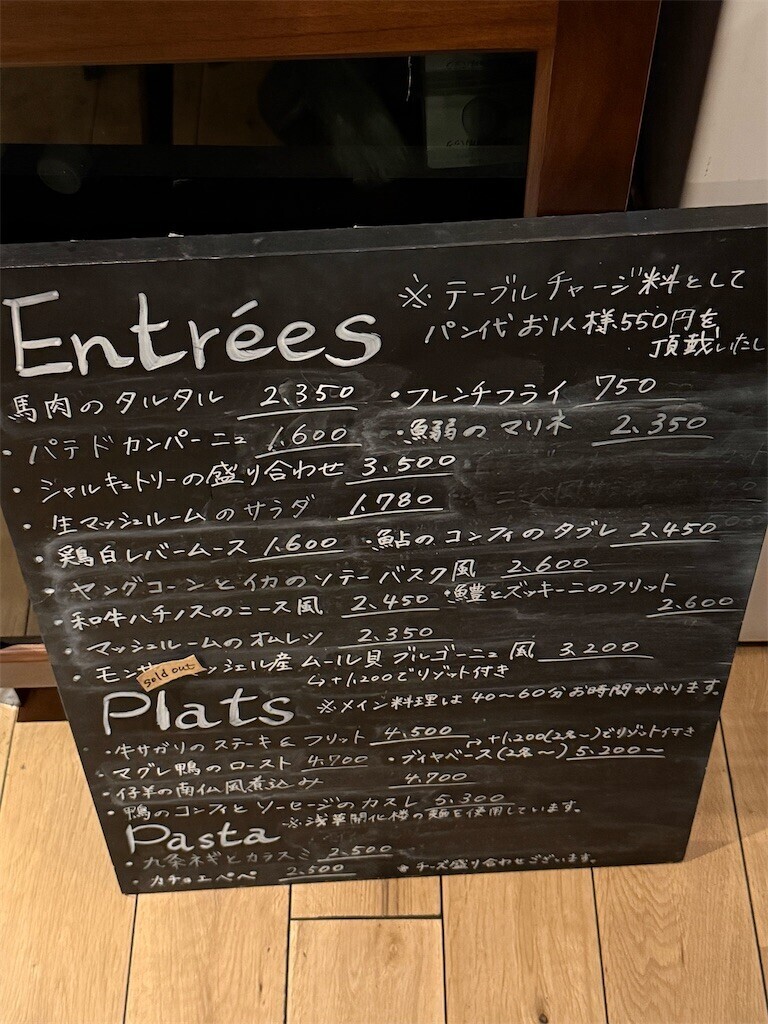 Entrées
※テーブルチャージ料として
パン代お1人様550円を
頂戴いたし
馬肉のタルタル 2.350
・フレンチフライ 750
・パテドカンパーニュ 1.600
・鰯のマリネ 2.350
・シャルキュトリーの盛り合わせ 3.500
・生マッシュルームのサラダ 1.780
・鶏白レバームース 1.600
・鮎のコンフィのタブレ 2.450
・ヤングコーンとイカのソテーバスク風 2.600
・和牛ハチノスのニース風 2.450
・鱧とズッキーニのフリット
2.600
・マッシュルームのオムレツ 2.350
・モンサ ッシェル産 ムール貝ブルゴーニュ風 3.200
sold out
↳+1.200でリゾット付き
Plats
※メイン料理は40〜60分お時間かかります。
・牛サガリのステーキ&フリット 4.500
→+1.200(2名〜)でリゾット付き
・マグレ鴨のロースト 4.700
・ブイヤベース(2名〜) 5.200〜
・仔羊の南仏風煮込み 4.700
・鴨のコンフィとソーセージのカスレ 5.300
Pasta
※浅草開化楼の麺を使用しています。
・九条ネギとカラスミ 2.500
・カチョエペペ 2.500
チーズ盛り合わせございます。